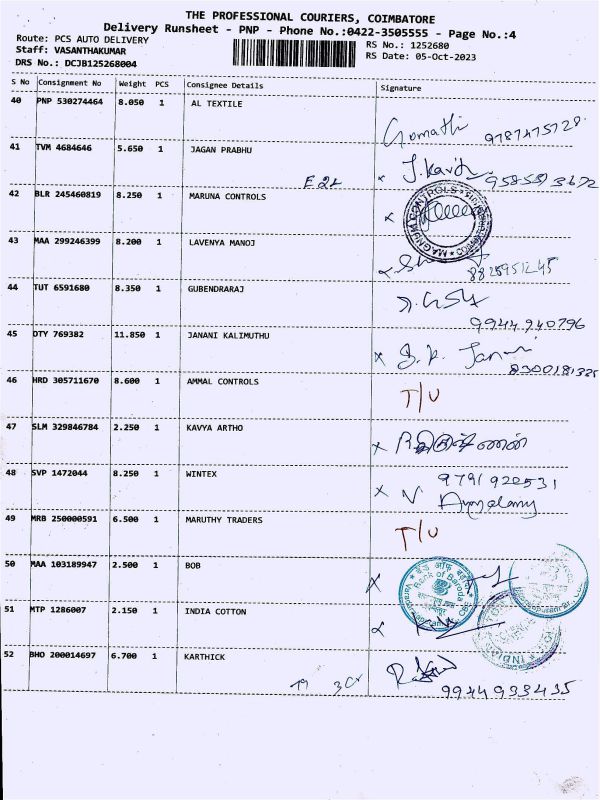 THE PROFESSIONAL COURIERS, COIMBATORE
Delivery Runsheet - PNP - Phone No.:0422-3505555 - Page No.:4
Route: PCS AUTO DELIVERY
RS No.: 1252680
Staff: VASANTHAKUMAR
RS Date: 05-Oct-2023
DRS No.: DCJB125268004
S No Consignment No Weight PCS Consignee Details Signature
40 PNP 530274464 8.050 1 AL TEXTILE
Gomathi 9787475728
41 TVM 4684646 5.650 1 JAGAN PRABHU
42 BLR 245460819 8.250 1 MARUNA CONTROLS
MAGNUM CONTROLS
43 MAA 299246399 8.200 1 LAVENYA MANOJ
8825951245
44 TUT 6591680 8.350 1 GUBENDRARAJ
9944940796
45 DTY 769382 11.850 1 JANANI KALIMUTHU
8300181335
46 HRD 305711670 8.600 1 AMMAL CONTROLS
T/U
47 SLM 329846784 2.250 1 KAVYA ARTHO
48 SVP 1472044 8.250 1 WINTEX
9791922531
49 MRB 250000591 6.500 1 MARUTHY TRADERS
T/U
50 MAA 103189947 2.500 1 BOB
Bank of Baroda
51 MTP 1286007 2.150 1 INDIA COTTON
52 BHO 200014697 6.700 1 KARTHICK
9944933435